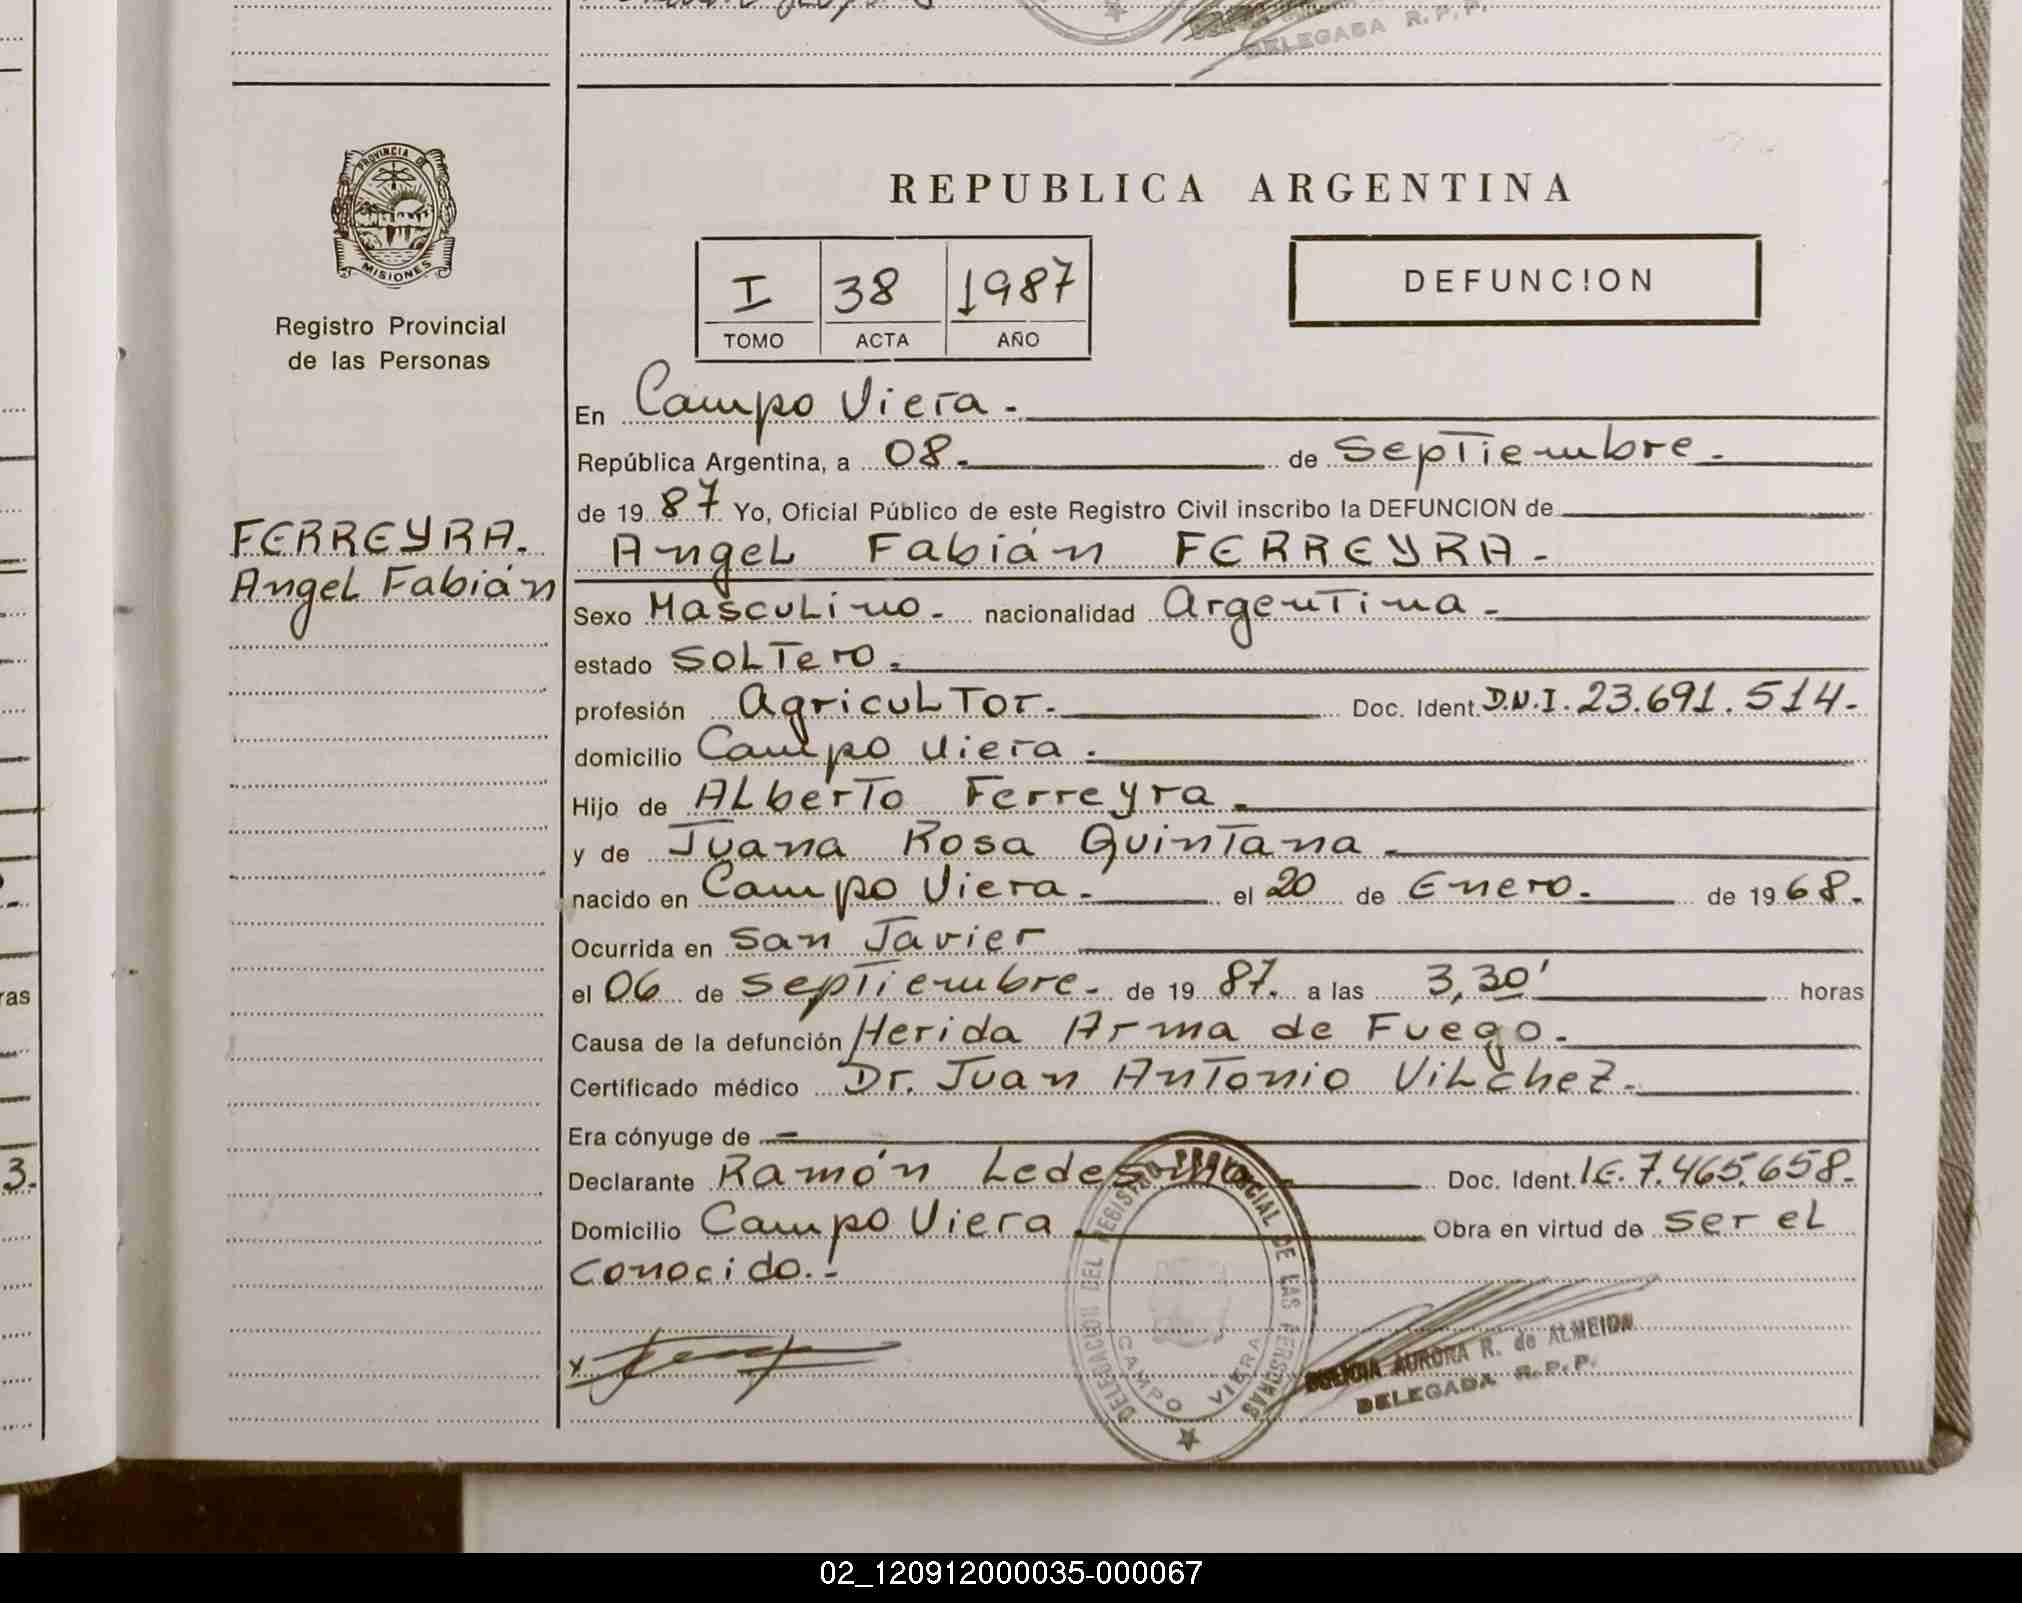 DELEGADA R.P.P.
PROVINCIA DE
MISIONES
Registro Provincial
de las Personas
FERREYRA.
Angel Fabián
REPUBLICA ARGENTINA
I 38 1987
TOMO ACTA AÑO
DEFUNCION
En Campo Viera.
República Argentina, a 08. de Septiembre.
de 1987 Yo, Oficial Público de este Registro Civil inscribo la DEFUNCION de
Angel Fabián FERREYRA.
Sexo Masculino. nacionalidad Argentina.
estado Soltero.
profesión Agricultor. Doc. Ident. D.N.I. 23.691.514.
domicilio Campo Viera.
Hijo de Alberto Ferreyra.
y de Juana Rosa Quintana.
nacido en Campo Viera. el 20 de Enero. de 1968.
Ocurrida en San Javier
el 06 de Septiembre. de 1987. a las 3,30' horas
Causa de la defunción Herida Arma de Fuego.
Certificado médico Dr. Juan Antonio Vilchez.
Era cónyuge de -
Declarante Ramón Ledesma Doc. Ident. LE. 7.465.658.
Domicilio Campo Viera. Obra en virtud de ser el
Conocido.-
DELEGACION DEL REGISTRO PROVINCIAL DE LAS PERSONAS
CAMPO VIERA
AURORA R. de ALMEIDA
DELEGADA R.P.P.
ras
3.
02_120912000035-000067